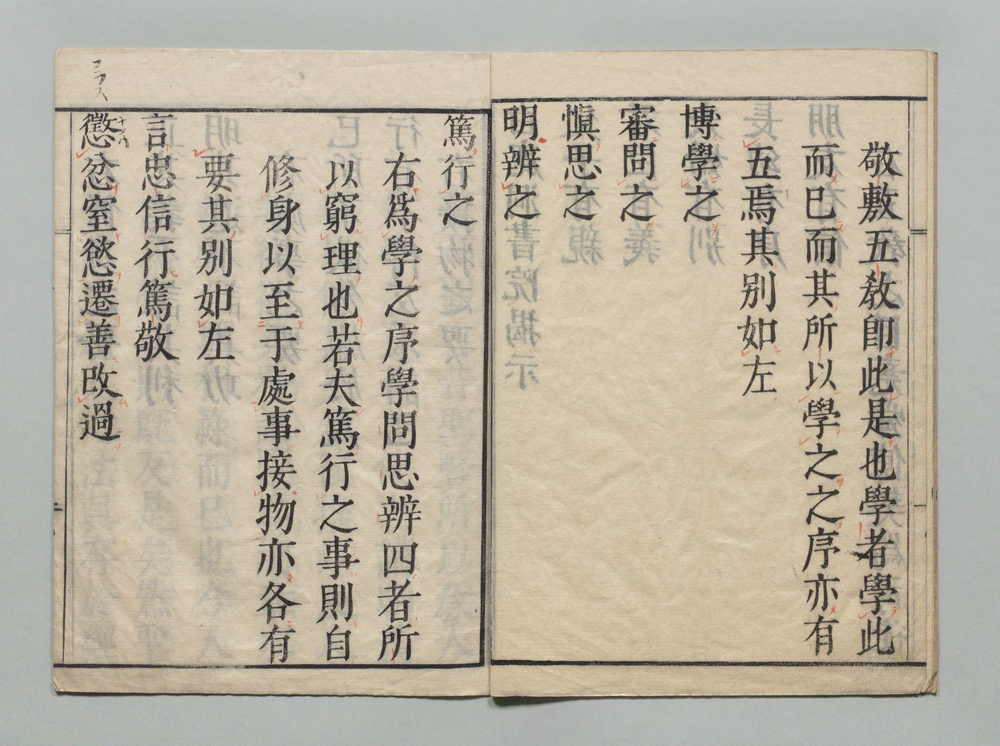 敬敷五敎卽此是也學者學此
而巳而其所以學之之序亦有
五焉其別如左
博學之
審問之
愼思之
明辨之
篤行之
右爲學之序學問思辨四者所
以窮理也若夫篤行之事則自
修身以至于處事接物亦各有
要其別如左
言忠信行篤敬
懲忿窒慾遷善改過